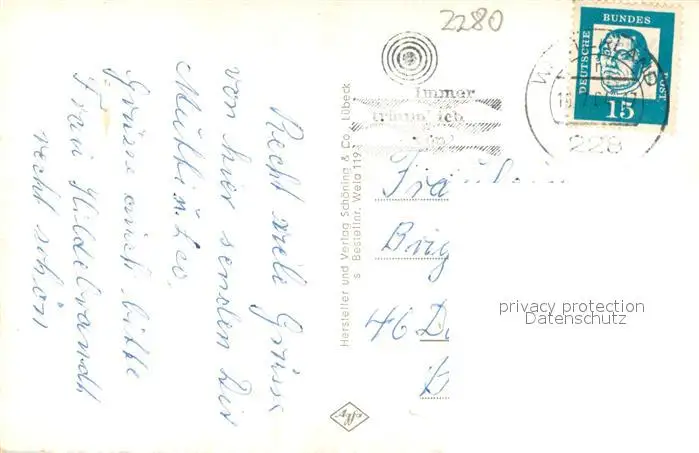 2280
Recht viele Grüsse
von hier senden Dir
Mutti u. Leo.
Grüsse auch bitte
Frau Hildebrandt
recht schön
Hersteller und Verlag Schöning & Co., Lübeck
s Bestellnr. Wela 119
Agfa
immer
DEUTSCHE
BUNDES
POST
15
228
Fräulein
Brig
46 D
privacy protection
Datenschutz